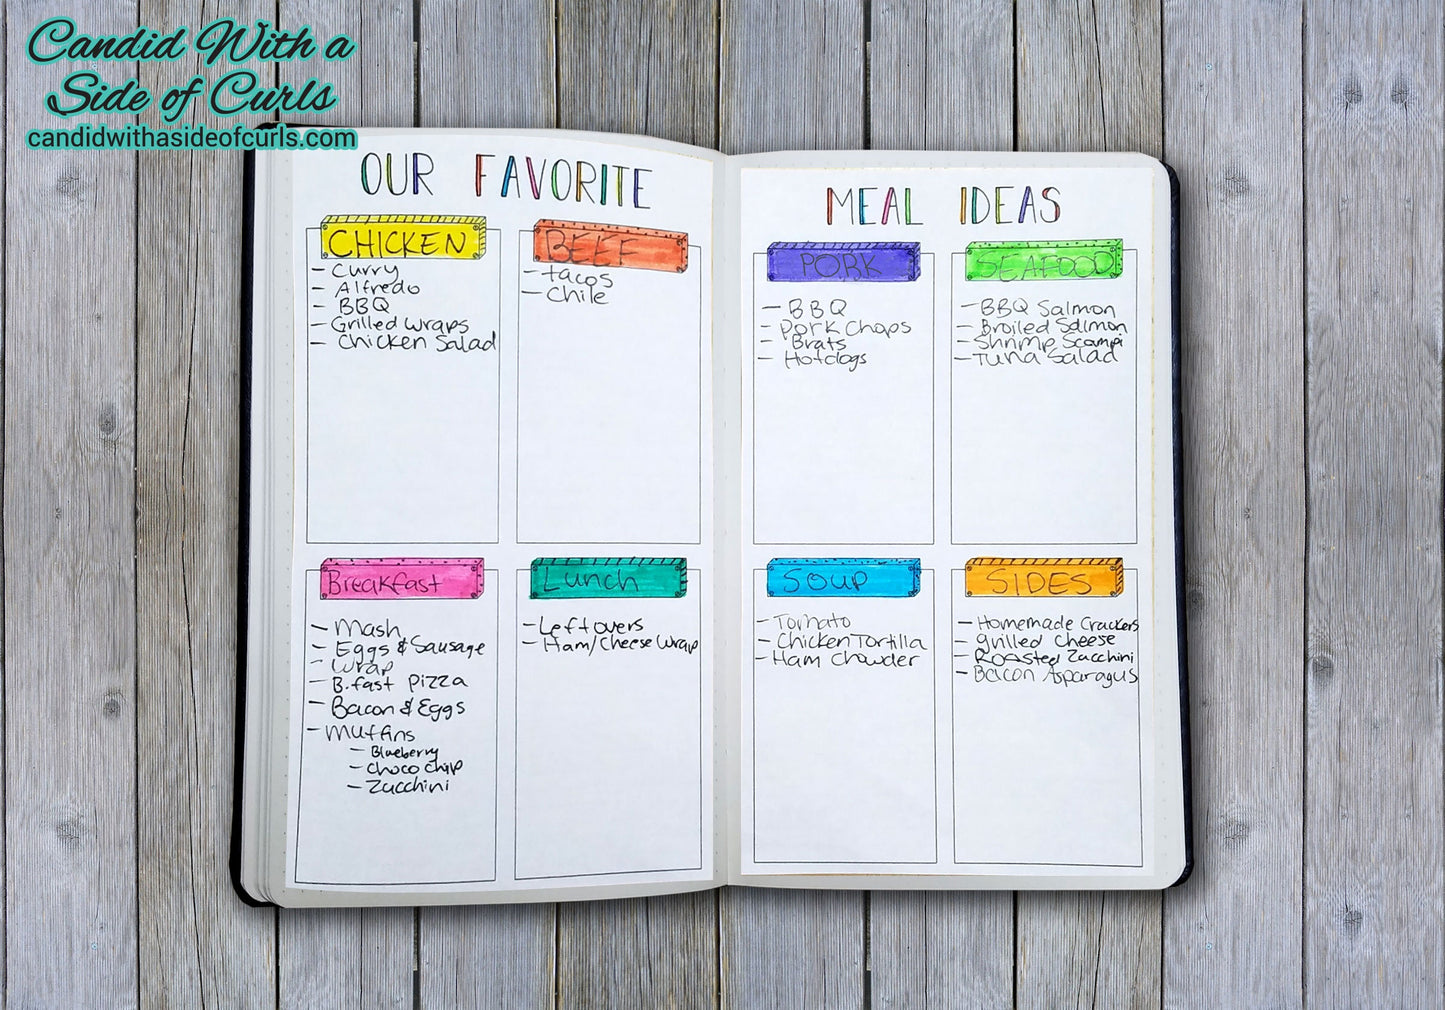 Candid With a
Side of Curls
candidwithasideofcurls.com
OUR FAVORITE
CHICKEN
- Curry
- Alfredo
- BBQ
- Grilled wraps
- Chicken Salad
BEEF
- tacos
- Chile
Breakfast
- Mash
- Eggs & Sausage
- Wrap
- B.fast pizza
- Bacon & Eggs
- Muffins
- Blueberry
- Choco chip
- Zucchini
Lunch
- Leftovers
- Ham/Cheese Wrap
MEAL IDEAS
PORK
- BBQ
- Pork Chops
- Brats
- Hotdogs
SEAFOOD
- BBQ Salmon
- Broiled Salmon
- Shrimp Scampi
- Tuna Salad
SOUP
- Tomato
- Chicken Tortilla
- Ham Chowder
SIDES
- Homemade Crackers
- grilled cheese
- Roasted Zucchini
- Bacon Asparagus